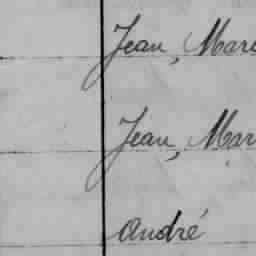 Jean, Mari
Jean, Mar
André